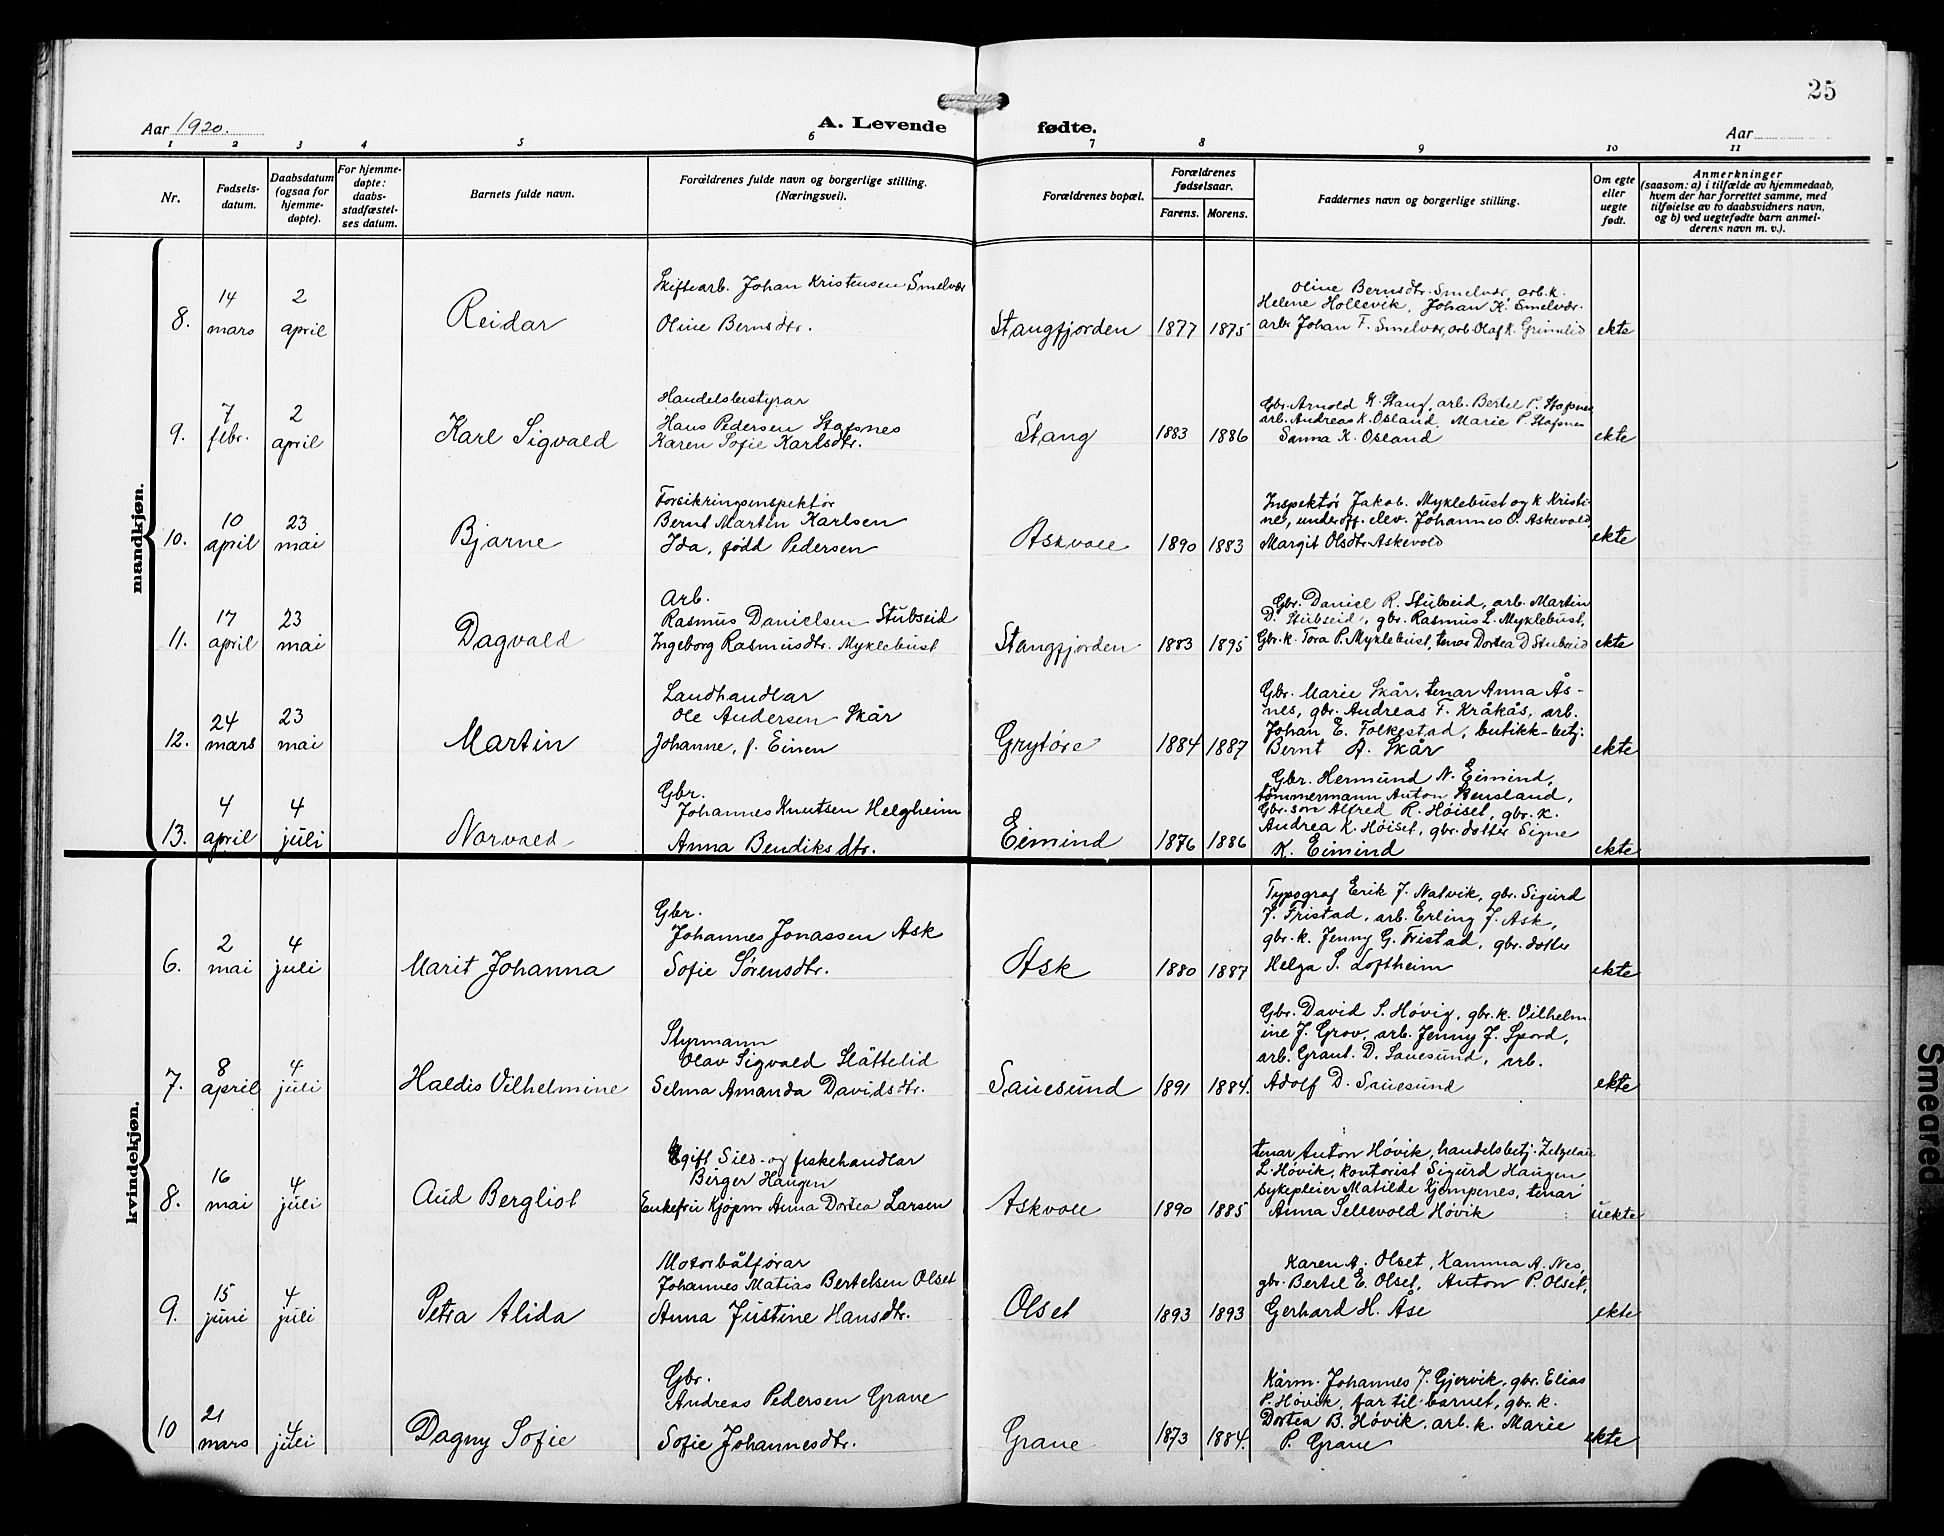 25
Aar 1920.
A. Levende fødte.
Aar
1 2 3 4 5 6 7 8 9 10 11
Nr.
Fødsels-
datum.
Daabsdatum
(ogsaa for
hjemme-
døpte).
For hjemme-
døpte:
daabs-
stadfæstel-
ses datum.
Barnets fulde navn.
Forældrenes fulde navn og borgerlige stilling.
(Næringsvei).
Forældrenes bopæl.
Forældrenes
fødselsaar.
Farens. Morens.
Faddernes navn og borgerlige stilling.
Om egte
eller
uegte
født.
Anmerkninger
(saasom: a) i tilfælde av hjemmedaab,
hvem der har forrettet samme, med
tilføielse av to daabsvidners navn,
og b) ved uegtefødte barn anmel-
derens navn m. v.).
mandkjøn.
8.
14
mars
2
april
Reidar
Skiftearb. Johan Kristensen Smelvær
Oline Berntsdtr.
Stangfjorden
1877 1875
Oline Berntsdtr. Smelvær, arb.k.
Helene Hollevik, Johan K. Smelvær.
arb. Johan T. Smelvær, arb. Olaf K. Grimelid
ekte
9.
7
febr.
2
april
Karl Sigvald
Handelsbestyrar
Hans Pedersen Stafsnes
Karen Sofie Karlsdtr.
Stang
1883 1886
Gbr. Arnold K. Stang, arb. Bertel P. Stafsnes
arb. Andreas K. Osland, Marie P. Stafsnes
Sanna K. Osland
ekte
10.
10
april
23
mai
Bjarne
Forsikringsinspektør
Bernt Martin Karlsen
Ida, fødd Pedersen
Askvoll
1890 1883
Inspektør Jakob Myklebust og k Kristi-
ne, underoff. elev. Johannes O. Askevold
Margit Olsdtr. Askevold
ekte
11.
17
april
23
mai
Dagvald
Arb.
Rasmus Danielsen Stubseid
Ingeborg Rasmusdtr. Myklebust
Stangfjorden
1883 1895
Gbr. Daniel R. Stubseid, arb. Martin
D. Stubseid, gbr. Rasmus L. Myklebust,
Gbr.k. Tora P. Myklebust, tenar Dortea D Stubseid
ekte
12.
24
mars
23
mai
Martin
Landhandlar
Ole Andersen Skår
Johanne, f. Einen
Grytøre
1884 1887
Gbr. Marie Skår, tenar Anna Ås-
nes, gbr. Andreas F. Kråkås, arb.
Johan E. Folkestad, butikk-betj:
Bernt A. Skår
ekte
13.
4
april
4
juli
Norvald
Gbr.
Johannes Knutsen Helgheim
Anna Bendiksdtr.
Eimind
1876 1886
Gbr. Hermund N. Eimind,
tømmermann Anton
Gbr. son Alfred R. Høiset, gbr. k.
Andrea K. Høiset, gbr. dotter Signe
K. Eimind
ekte
kvindekjøn.
6.
2
mai
4
juli
Marit Johanna
Gbr.
Johannes Jonassen Ask
Sofie Sørensdtr.
Ask
1880 1887
Typograf Erik J. Natvik, gbr. Sigurd
J. Fristad, arb. Erling J. Ask,
gbr. k. Jenny G. Fristad, gbr. dotter
Helga S. Loftheim
ekte
7.
8
april
4
juli
Haldis Vilhelmine
Styrmann
Olav Sigvald Slåttelid
Selma Amanda Davidsdtr.
Sauesund
1891 1884.
Gbr. David S. Høvig, gbr. k. Vilhelm
ine J. Grov, arb. Jenny J. Spord,
arb. Graut. D. Sauesund, arb.
Adolf D. Sauesund
ekte
8.
16
mai
4
juli
Aud Bergliot
Ugift Sild- og fiskehandlar
Birger Haugen
Enkefru Kjøpm Anna Dortea Larsen
Askvoll
1890 1885
tenar Anton Høvik, handelsbetj.
L. Høvik, kontorist Sigurd Haugen
sykepleier Matilde Kjempenes, tenar
Anna Sellevold Høvik
uekte
9.
15
juni
4
juli
Petra Alida
Motorbåtførar
Johannes Matias Bertelsen Olset
Anna Justine Hansdtr.
Olset
1893 1893
Karen A. Olset, Kamma A. Nes,
gbr. Bertil E. Olset, Anton P. Olset,
Gerhard H. Åse
ekte
10
21
mars
4
juli
Dagny Sofie
Gbr.
Andreas Pedersen Grave
Sofie Johannesdtr.
Grave
1873 1884.
Kårm. Johannes J. Gjervik, gbr. Elias
P. Høvik, far til barnet, gbr. k.
Dortea B. Høvik, arb. k. Marie
P. Grave
ekte
Smeared